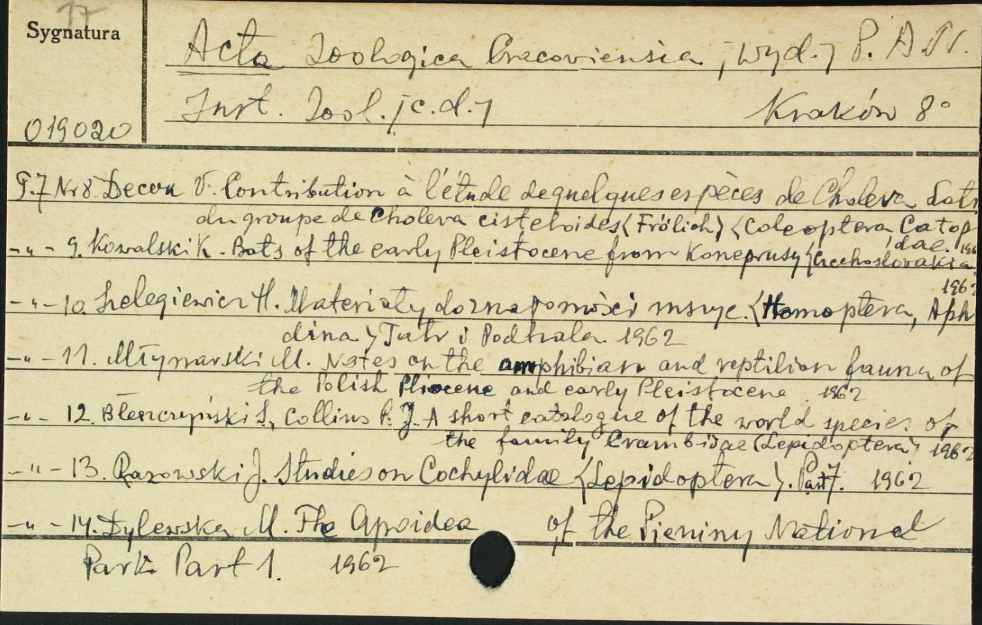 17
Sygnatura
Acta Zoologica Cracoviensia, [wyd.] P. A. N.
Inst. Zool. [c.d.] Kraków 8°
019020
T.7 Nr 8. Decou V. Contribution à l'étude de quelques espèces de Choleva Latr
du groupe de Choleva cisteloides (Frölich) (Coleoptera Catop
dae. 196
-"- 9. Kowalski K. Bats of the early Pleistocene from Koneprusy (Czechoslovakia
1962
-"- 10. Szelegiewicz H. Materiały do znajomości mszyc. (Homoptera, Aph
dina) Tatr i Podhala 1962
-"- 11. Młynarski M. Notes on the amphibian and reptilian fauna of
the Polish Pliocene and early Pleistocene. 1962
-"- 12. Błeszczyński S., Collins R. J. A short catalogue of the world species of
the family Crambidae (Lepidoptera) 1962
-"- 13. Razowski J. Studies on Cochylidae (Lepidoptera). Part 7. 1962
-"- 14. Dylewska M. The Apoidea of the Pieniny National
Park Part 1. 1962